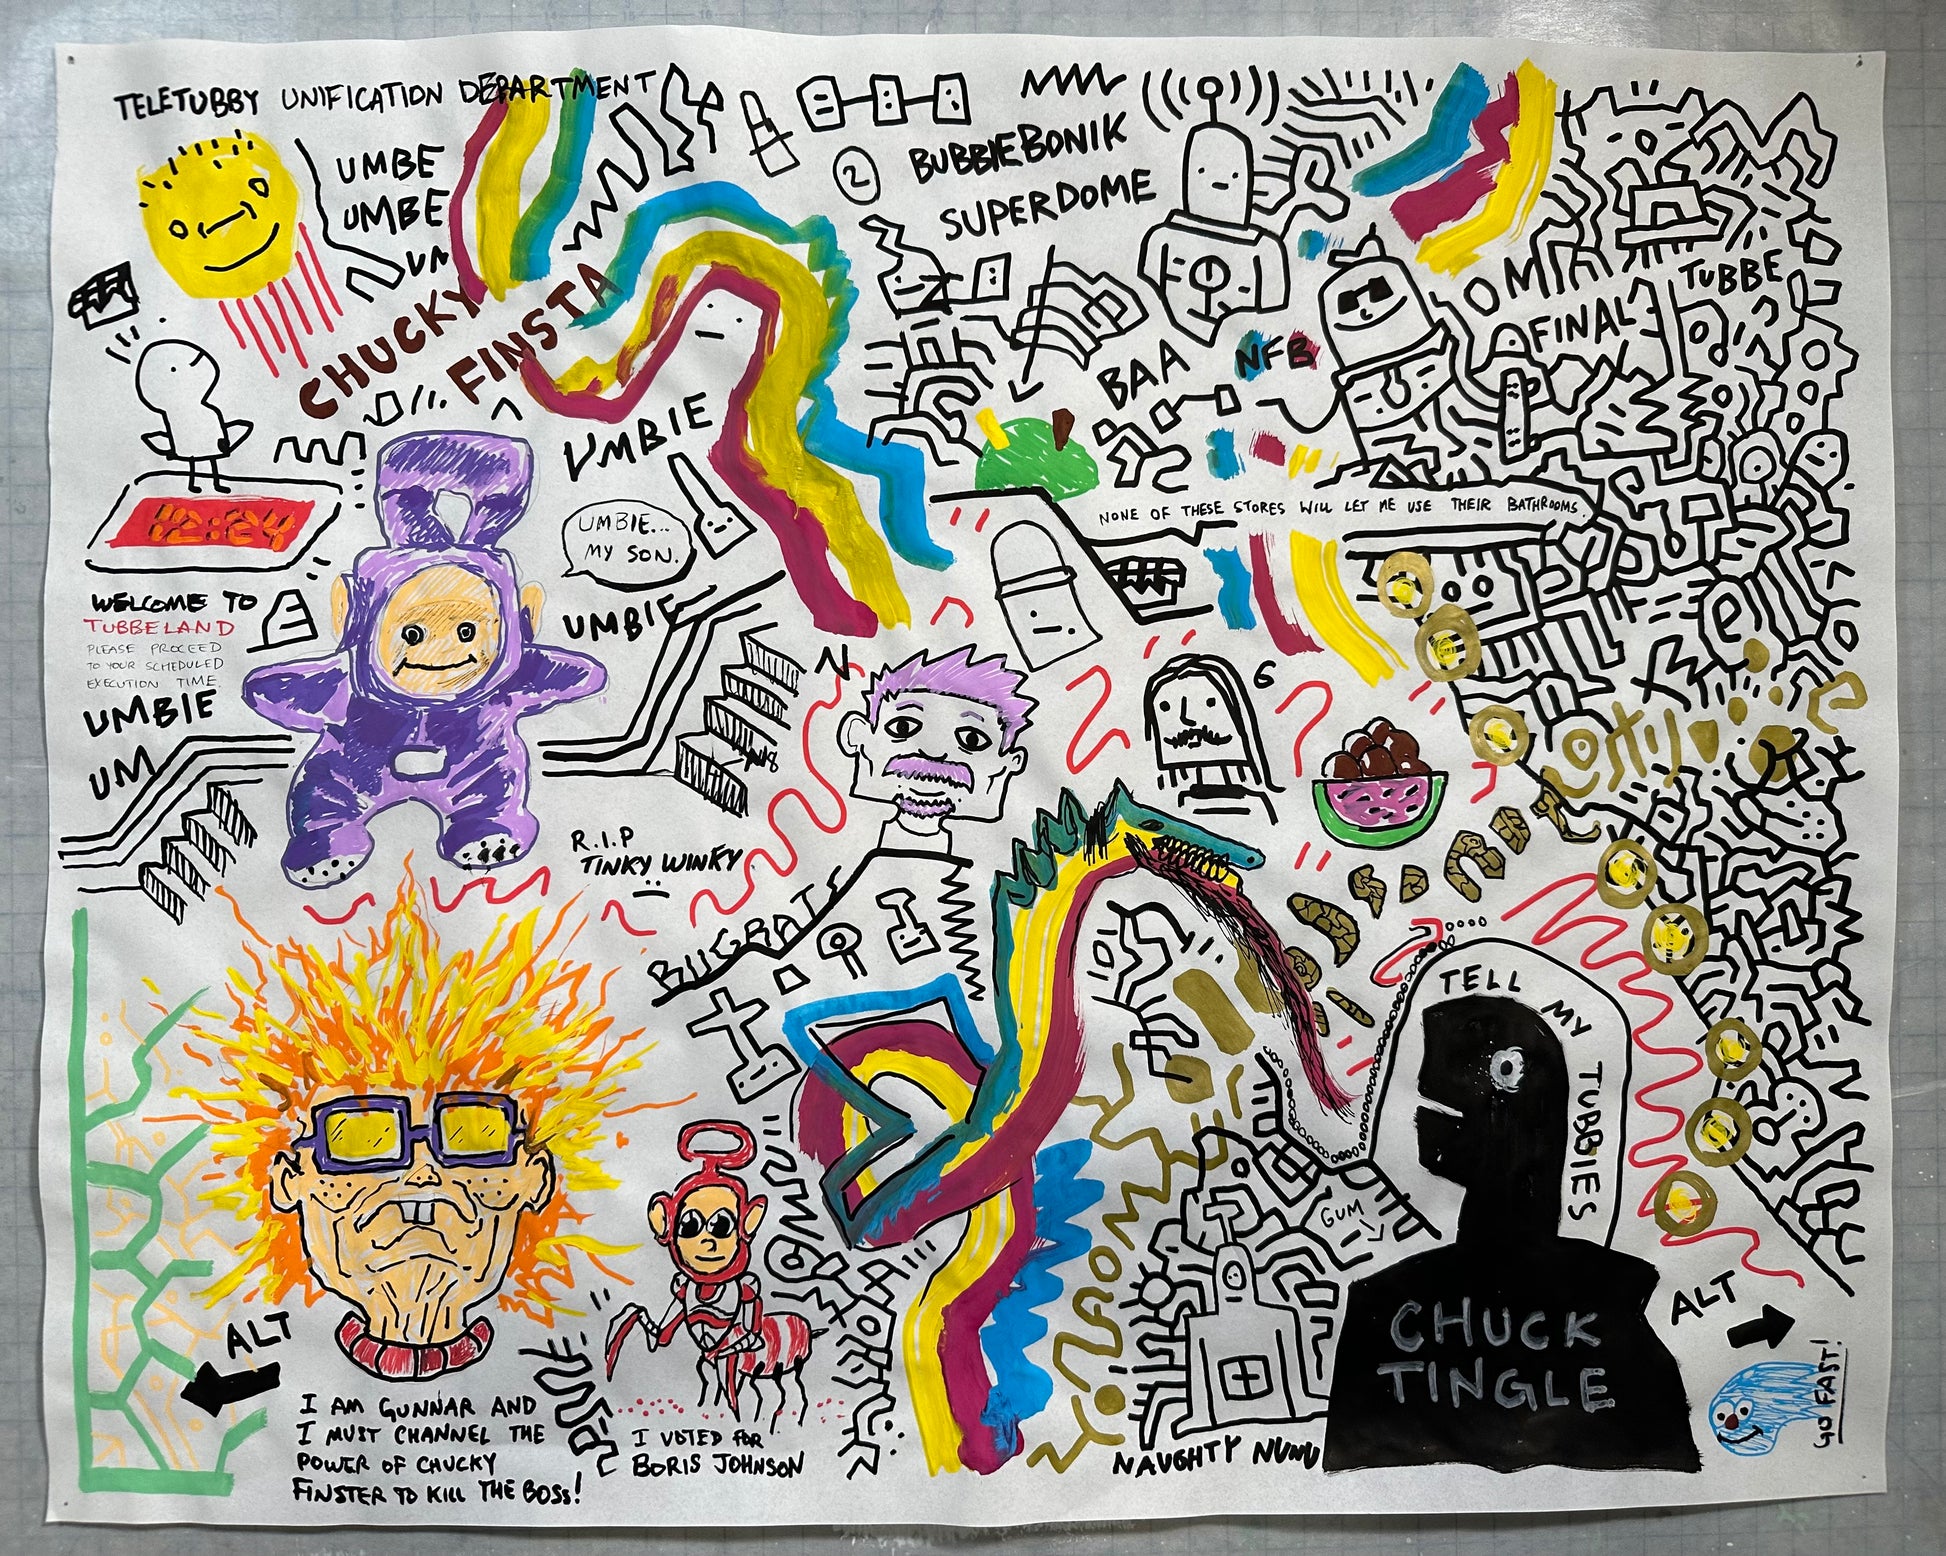 TELETUBBY UNIFICATION DEPARTMENT
UMBE
UMBE
UM
CHUCKY
FINSTA
2
BUBBIEBONIK
SUPERDOME
BAA
NFB
OMTR
FINAL
TUBBE
NONE OF THESE STORES WILL LET ME USE THEIR BATHROOMS.
12:24
WELCOME TO
TUBBELAND
PLEASE PROCEED
TO YOUR SCHEDULED
EXECUTION TIME
UMBIE
UM
UMBIE
UMBIE...
MY SON.
UMBIE
N
6
R.I.P
TINKY WINKY
BUGRATS
TELL MY TUBBIES
CHUCK
TINGLE
GUM
ALT
I AM GUNNAR AND
I MUST CHANNEL THE
POWER OF CHUCKY
FINSTER TO KILL THE BOSS!
I VOTED FOR
BORIS JOHNSON
NAUGHTY NUNU
ALT
GO FAST!